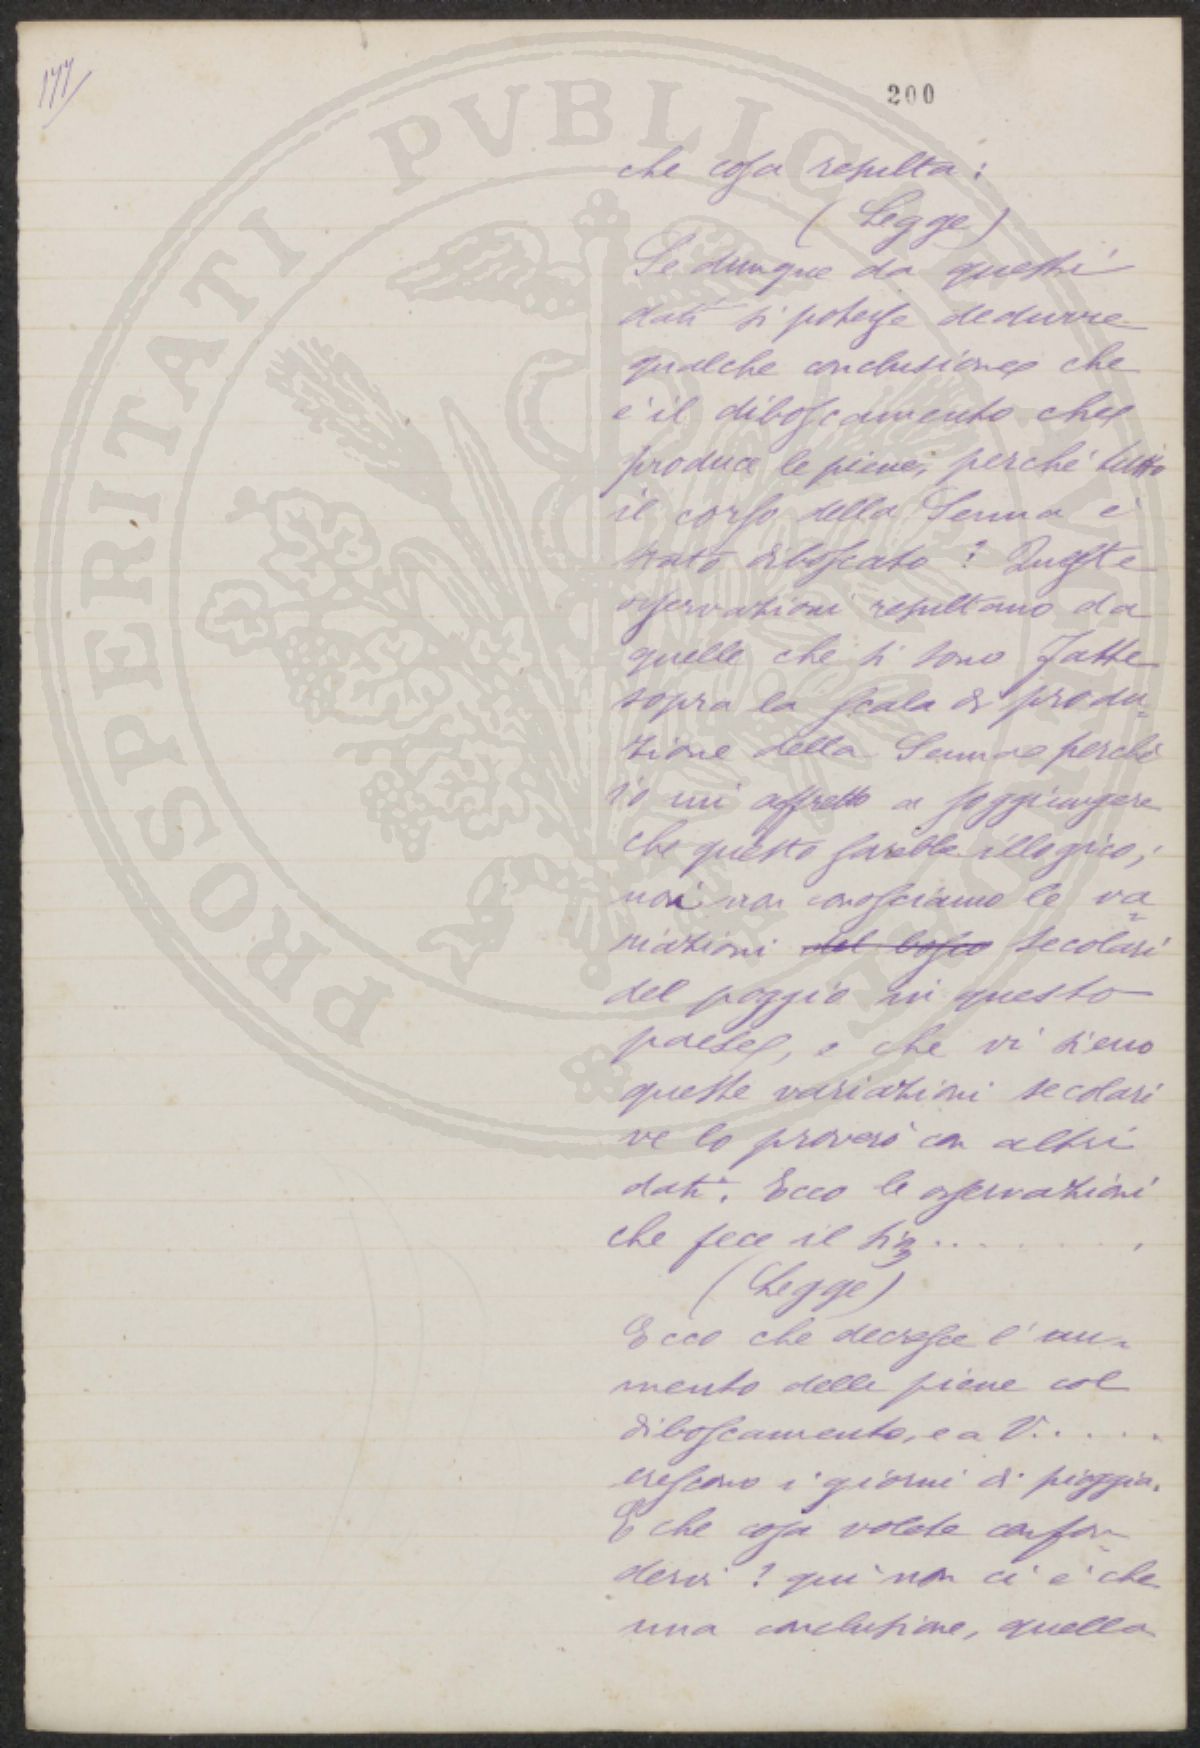 177
200
che cosa resulta:
(Legge)
Se dunque da questi
dati si potesse dedurre
qualche conclusione che
è il diboscamento che
produce le piene, perché tutto
il corso della Senna è
stato diboscato? Queste
osservazioni resultano da
quelle che si sono fatte
sopra la scala di produ=
zione della Senna e perchè
io mi affretto a soggiungere
che questo sarebbe illogico;
noi non conosciamo le va=
riazioni del bosco secolari
del poggio in questo
paese, e che vi sieno
queste variazioni secolari
ve lo proverò con altri
dati. Ecco le osservazioni
che fece il Sig.........
(Legge)
Ecco che decresce l'au=
mento delle piene col
diboscamento, e a V.....
crescono i giorni di pioggia.
E che cosa volete confon=
dervi? qui non ci è che
una conclusione, quella
PROSPERITATI PVBLICAE